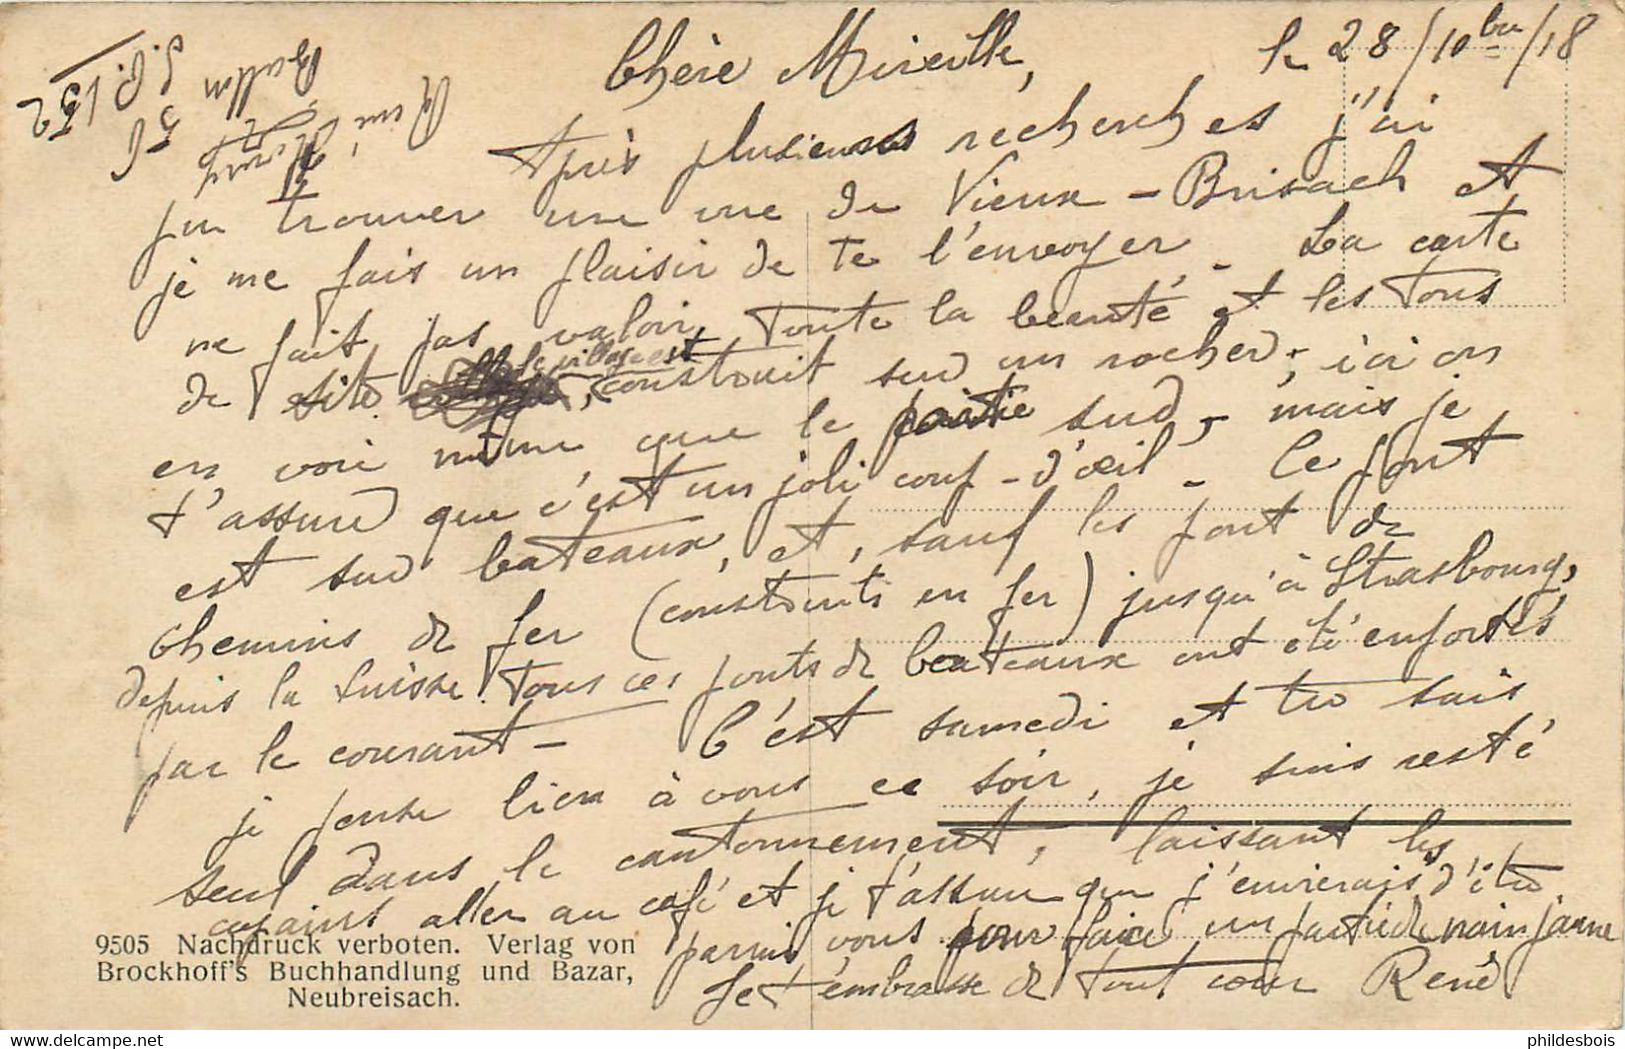 le 28/10bre/18
Chère Mireille,
Après plusieurs recherches j'ai
pu trouver une vue de Vieux-Brisach et
je me fais un plaisir de te l'envoyer - La carte
ne fait pas valoir toute la beauté et les tons
de site le village est construit sur un rocher; ici on
en voie même que le partie sud, - mais je
t'assure que c'est un joli coup-d'œil - Ce pont
est sur bateaux, et, sauf les pont de
chemins de fer (construits en fer) jusqu'à Strasbourg,
depuis la Suisse tous ces ponts de bateaux ont été enportés
par le courant - C'est samedi et tu sais
je pense bien à vous ce soir, je suis resté
seul dans le cantonnement, laissant les
copains aller au café et je t'assure que j'envierais d'être
parmi vous pour faire un partie de nain jaune
Je t'embrasse de tout cœur René
René
Ballon
56
S.P. 152
9505 Nachdruck verboten. Verlag von
Brockhoff's Buchhandlung und Bazar,
Neubreisach.
phildesbois
www.delcampe.net